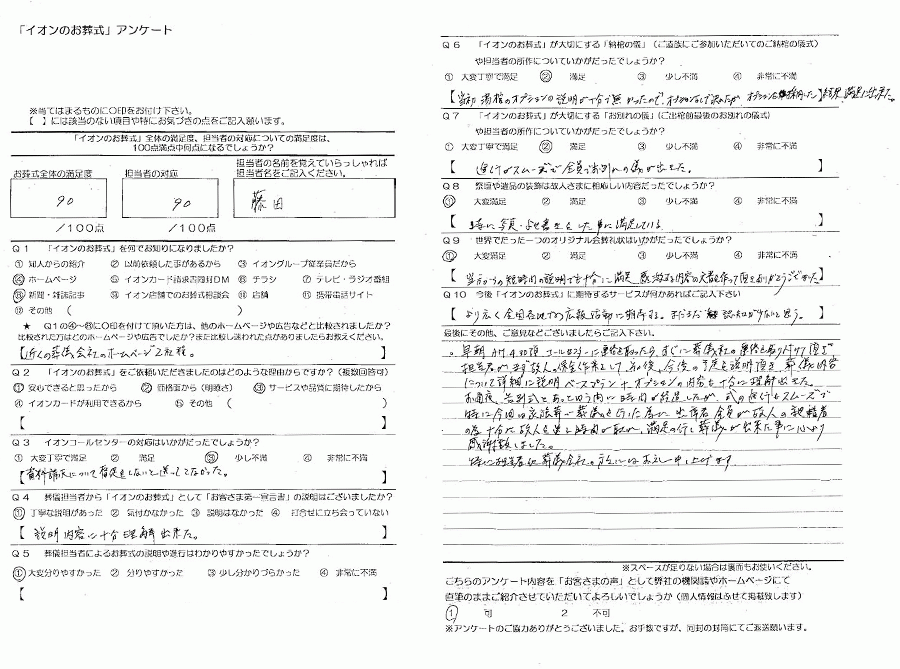 「イオンのお葬式」アンケート
※当てはまるものに〇印をお付け下さい。
【　】には該当のない項目や特にお気づきの点をご記入願います。
「イオンのお葬式」全体の満足度、担当者の対応についての満足度は、
100点満点中何点になるでしょうか？
お葬式全体の満足度
90
／100点
担当者の対応
90
／100点
担当者の名前を覚えていらっしゃれば
担当者名をご記入ください。
藤田
Q1　「イオンのお葬式」を何でお知りになりましたか？
① 知人からの紹介　② 以前依頼した事があるから　③ イオングループ従業員だから
④ ホームページ　⑤ イオンカード請求書同封DM　⑥ チラシ　⑦ テレビ・ラジオ番組
⑧ 新聞・雑誌記事　⑨ イオン店舗でのお葬式相談会　⑩ 店舗　⑪ 携帯電話サイト
⑫ その他　（　　　）
★　Q1の④～⑪に〇印を付けて頂いた方は、他のホームページや広告などと比較されましたか？
比較された方はどのホームページや広告でしたか？また比較し迷われた点がありましたらお教えください。
【近くの葬儀会社のホームページ2社程。】
Q2　「イオンのお葬式」をご依頼いただきましたのはどのような理由からですか？（複数回答可）
① 安心できると思ったから　② 価格面から（明瞭さ）　③ サービスや品質に期待したから
④ イオンカードが利用できるから　⑤ その他　（　　　）
【　　　】
Q3　イオンコールセンターの対応はいかがだったでしょうか？
① 大変丁寧で満足　② 満足　③ 少し不満　④ 非常に不満
【資料請求について催促をしないと送ってこなかった。】
Q4　葬儀担当者から「イオンのお葬式」として「お客さま第一宣言書」の説明はございましたか？
① 丁寧な説明があった　② 気付かなかった　③ 説明はなかった　④ 打合せに立ち会っていない
【説明内容に十分理解出来た。】
Q5　葬儀担当者によるお葬式の説明や進行はわかりやすかったでしょうか？
① 大変分りやすかった　② 分りやすかった　③ 少し分かりづらかった　④ 非常に不満
【　　　】
Q6　「イオンのお葬式」が大切にする「納棺の儀」（ご遺族にご参加いただいてのご納棺の儀式）
や担当者の所作についていかがだったでしょうか？
① 大変丁寧で満足　② 満足　③ 少し不満　④ 非常に不満
【当初湯棺のオプションの説明が十分で無かったので、 満足出来た。
Q7　「イオンのお葬式」が大切にする「お別れの儀」（ご出棺前最後のお別れの儀式）
や担当者の所作についていかがだったでしょうか？
① 大変丁寧で満足　② 満足　③ 少し不満　④ 非常に不満
【進行がスムーズで全員でお別れの儀が出来た。】
Q8　祭壇や遺品の装飾は故人さまに相応しい内容だったでしょうか？
① 大変満足　② 満足　③ 少し不満　④ 非常に不満
【特に写真・ した事に満足している】
Q9　世界でたった一つのオリジナル会葬礼状はいかがだったでしょうか？
① 大変満足　② 満足　③ 少し不満　④ 非常に不満
【 短時間の説明で十分に満足、 内容の文書を作って頂きありがとうございました】
Q10　今後「イオンのお葬式」に期待するサービスが何かあればご記入下さい
【より広く全国各地での広報活動に期待する。まだまだ 認知が少ないと思う。】
最後にその他、ご意見などございましたらご記入下さい。
。早朝AM4:30頃コールセンターに 、すぐに葬儀社の
担当者が 、その後、今後の予定を説明頂き、葬儀内容
について詳細に説明　ベースプラン＋オプションの内容も十分に理解出来た。
お通夜、告別式とあっと言う内に時間が経過したが、式の進行もスムーズで
特に今回は家族葬で葬儀を行った為に出席者全員が故人の親類者
の為十分に故人を 時間が取れ、満足の行く葬儀が出来た事に心より
感謝致しました。
特に担当者 葬儀会社の方々にはお礼申し上げます
※スペースが足りない場合は裏面もお使いください。
こちらのアンケート内容を「お客さまの声」として弊社の機関誌やホームページにて
直筆のままご紹介させていただいてよろしいでしょうか（個人情報はふせて掲載致します）
1　可　　2　不可
※アンケートのご協力ありがとうございました。お手数ですが、同封の封筒にてご返送願います。